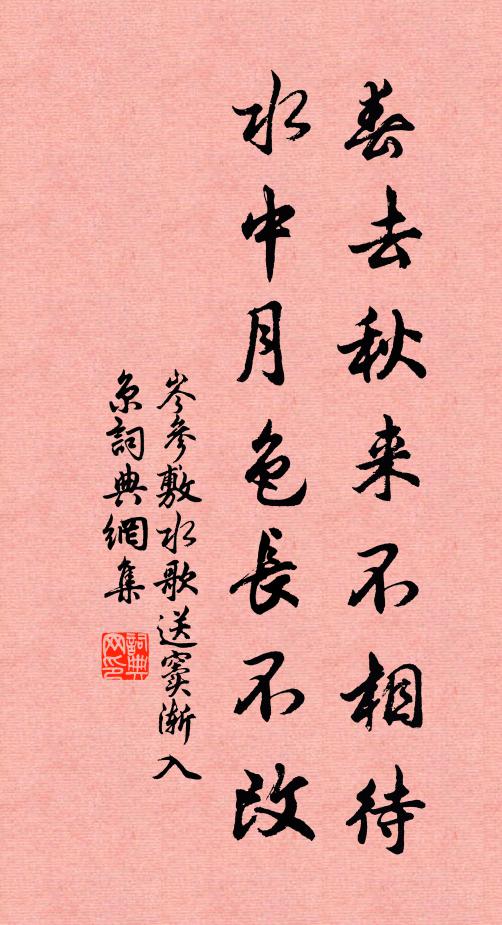 春去秋来不相待
水中月色長不改
岑參敷水歌送竇漸入
京詞典網集
詞典
网印